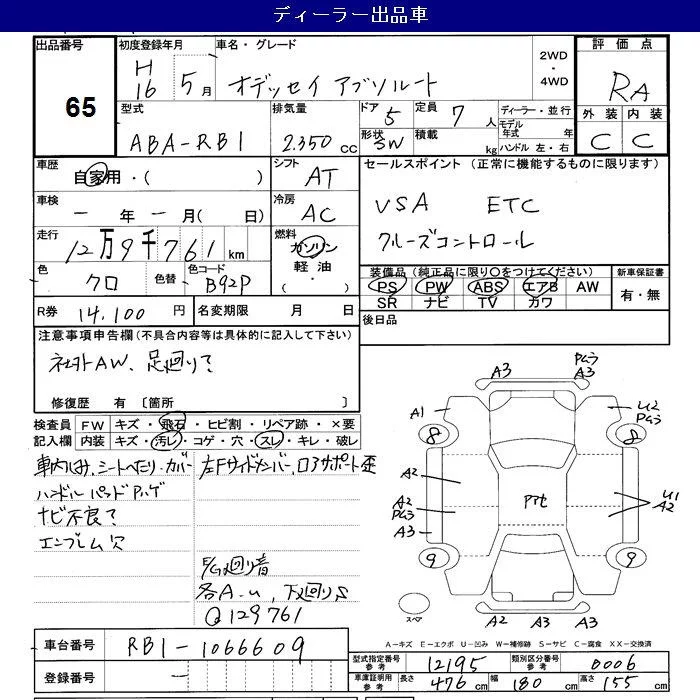 ディーラー出品車
出品番号 初度登録年月 車名・グレード 2WD・4WD 評価点
65 H16 5月 オデッセイ アブソルート RA
型式 排気量 ドア 5 定員 7人 ディーラー・並行 外装 内装
ABA-RB1 2.350cc 形状 SW 積載 kg モデル年式 年 ハンドル 左・右 C C
車歴 自家用・( ) シフト AT セールスポイント (正常に機能するものに限ります)
車検 ー年ー月(日) 冷房 AC VSA ETC
走行 12万9千761km 燃料 ガソリン・軽油・ クルーズコントロール
色 クロ 色替 色コード B92P 装備品(純正品に限り○をつけてください) 新車保証書
PS PW ABS エアB AW 有・無
SR ナビ TV カワ
R券 14,100円 名変期限 月 日 後日品
注意事項申告欄(不具合内容等は具体的に記入して下さい)
社外AW、足廻り?
修復歴 有 〔箇所 〕
検査員記入欄 FW キズ・飛石・ヒビ割・リペア跡・×要
内装 キズ・汚レ・コゲ・穴・スレ・キレ・破レ
シートへたり・カバー 左Fサイドメンバー、コアサポート歪
ハンドルパッドハゲ
ナビ不良?
エンブレム欠
廻り音
各A-u、下廻りS
Q129761
A3 PムラA3
A1 U2 Pムラ
8 8
A2
A2 Pムラ U1 A2
A3
9 9
スペア A2 A3 A3
A-キズ E-エクボ U-凹み W-補修跡 S-サビ C-腐食 XX-交換済
車台番号 RB1-1066609
登録番号 ー
型式指定番号参考 12195 類別区分番号参考 0006
車庫証明用参考 長さ 476cm 幅 180cm 高さ 155cm